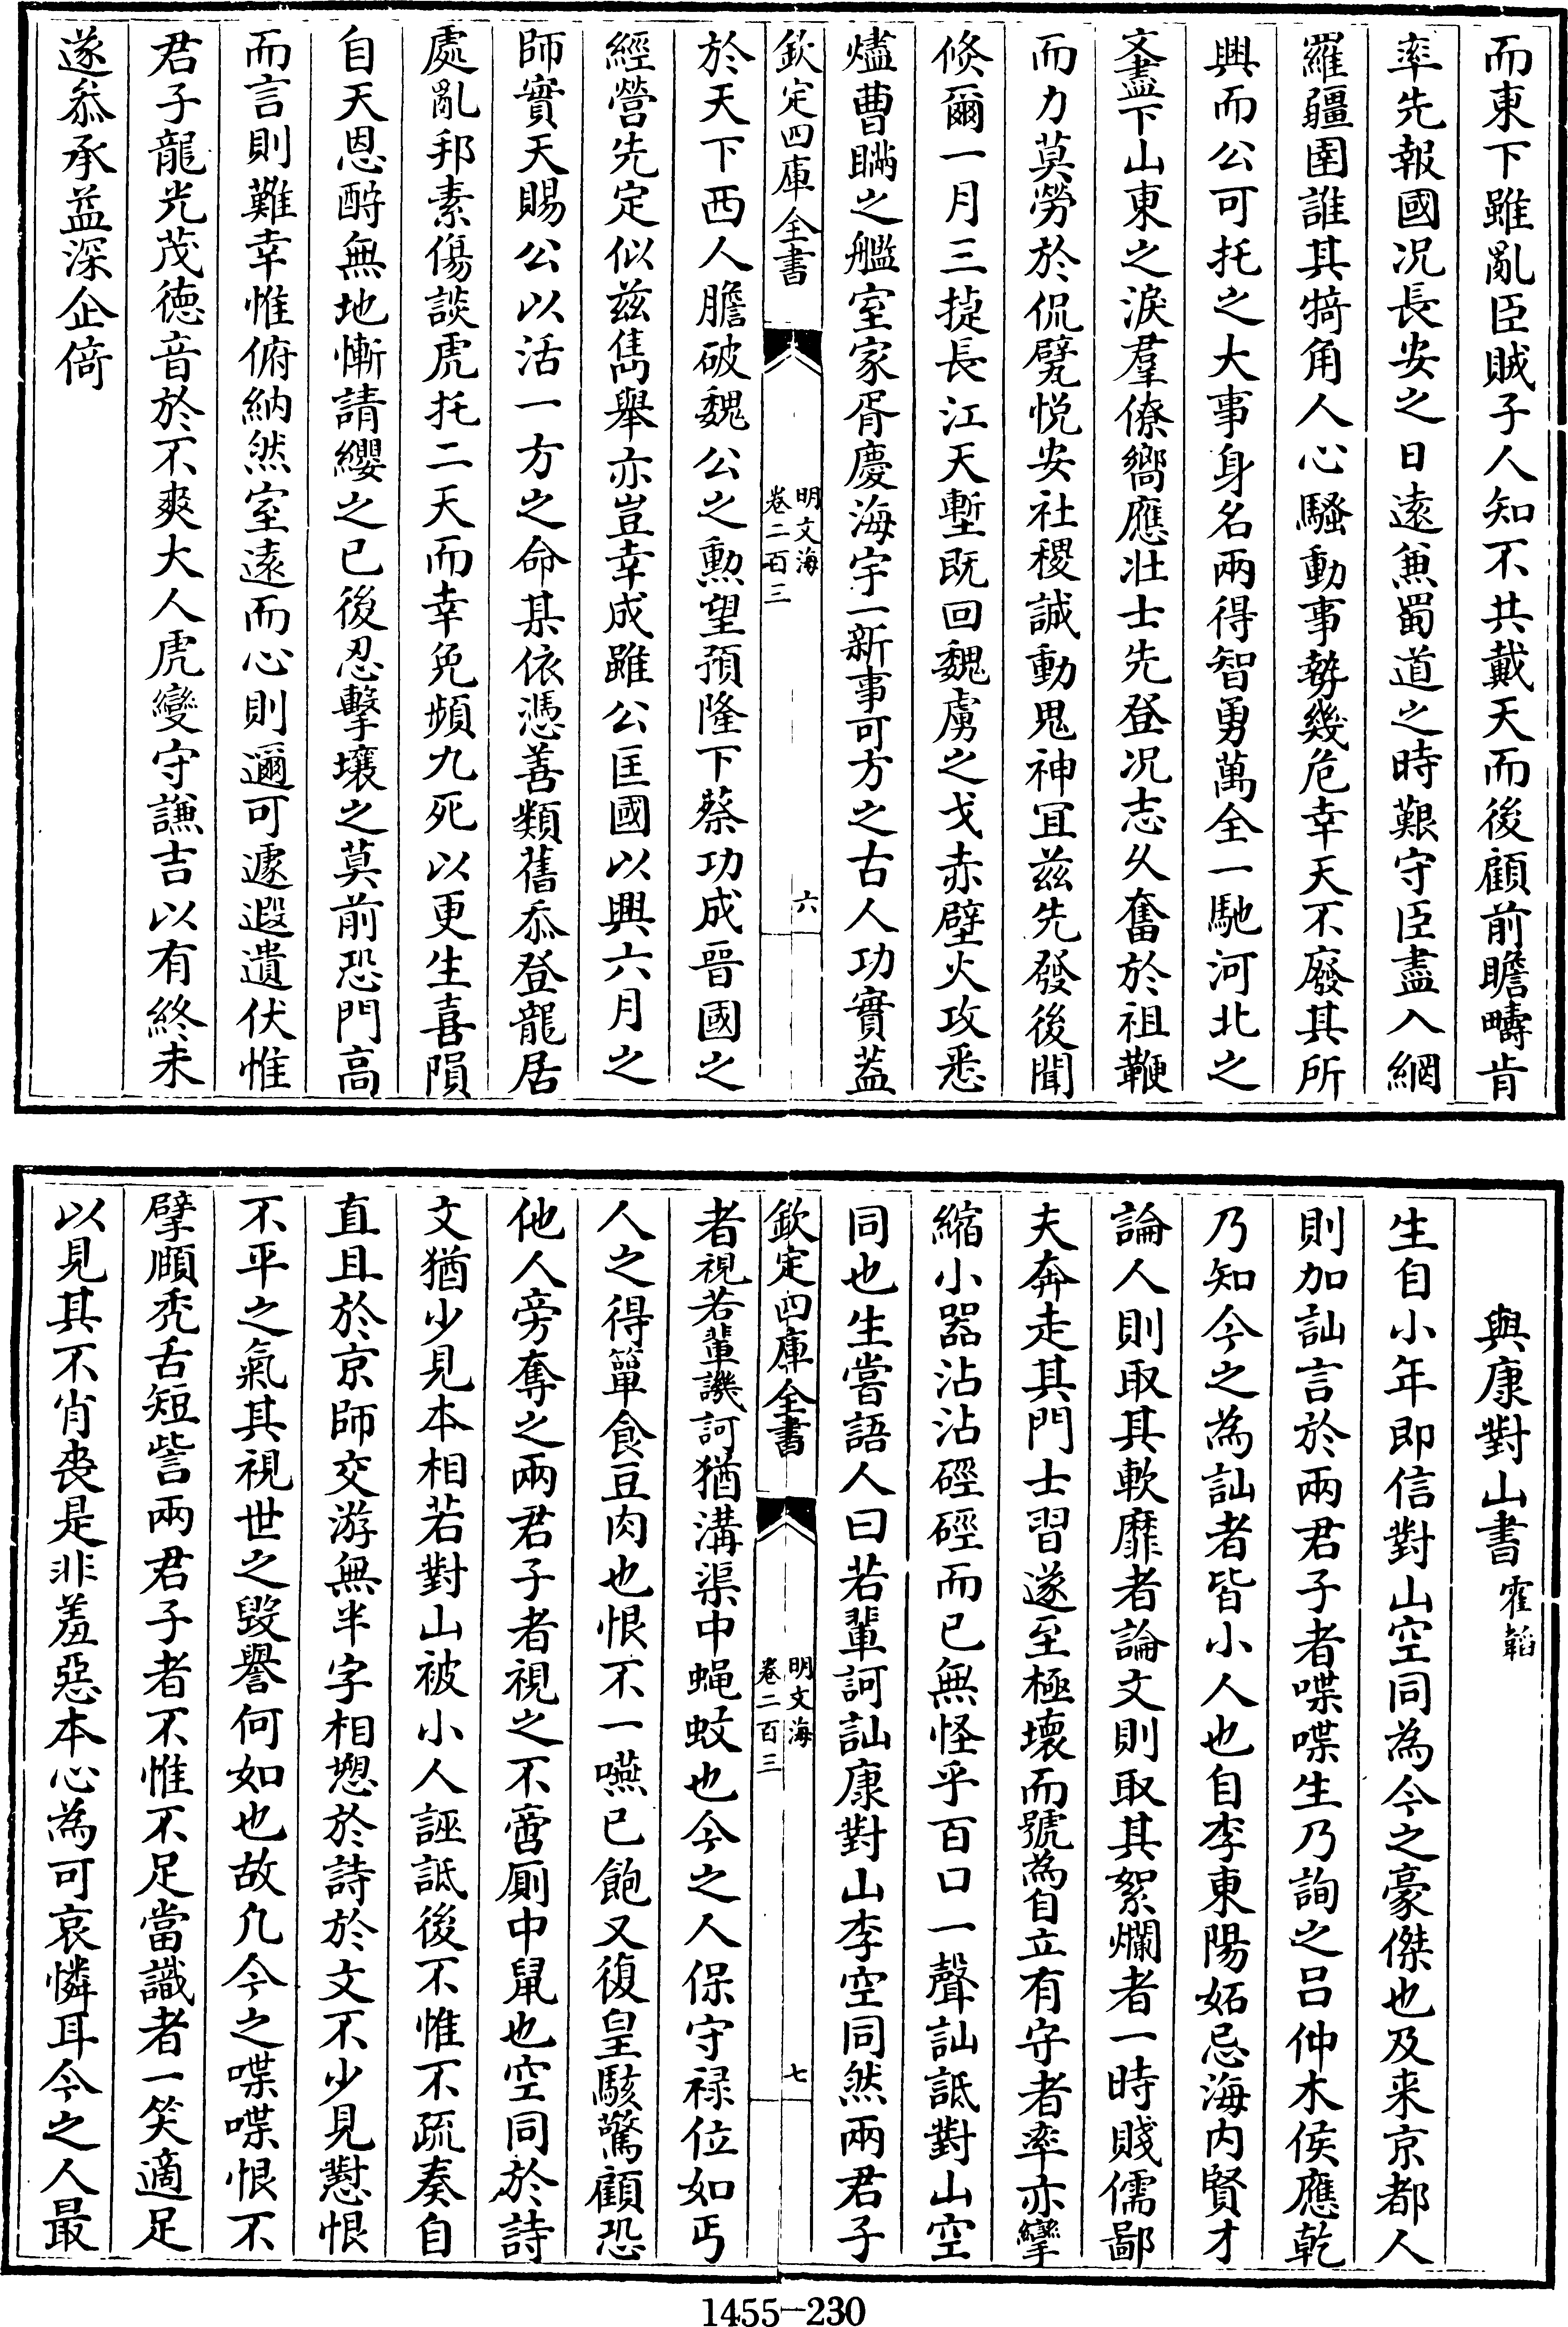 而東下雖亂臣賊子人知不共戴天而後顧前瞻疇肯
率先報國况長安之日遠兼蜀道之時艱守臣盡入網
羅疆圉誰其犄角人心騷動事勢幾危幸天不廢其所
興而公可托之大事身名兩得智勇萬全一馳河北之
文盡下山東之淚羣僚嚮應壯士先登况志久奮於祖鞭
而力莫勞於侃甓悦安社稷誠動鬼神冝兹先發後聞
倐爾一月三捷長江天塹既回魏虜之戈赤壁火攻悉
燼曹瞞之艦室家胥慶海宇一新事可方之古人功實葢
欽定四庫全書
明文海
卷二百三
六
於天下西人膽破魏公之勲望預隆下蔡功成晉國之
經營先定似兹雋舉亦豈幸成雖公匡國以興六月之
師實天賜公以活一方之命某依憑善類舊忝登龍居
處亂邦素傷談虎托二天而幸免頻九死以更生喜隕
自天恩酧無地慚請纓之已後忍擊壤之莫前恐門高
而言則難幸惟俯納然室遠而心則邇可遽遐遺伏惟
君子龍光茂德音於不爽大人虎變守謙吉以有終未
遂叅承益深企倚
與康對山書 霍韜
生自小年即信對山空同為今之豪傑也及来京都人
則加訕言於兩君子者喋喋生乃詢之吕仲木侯應乾
乃知今之為訕者皆小人也自李東陽妬忌海内賢才
論人則取其軟靡者論文則取其絮爛者一時賤儒鄙
夫奔走其門士習遂至極壞而號為自立有守者率亦攣
縮小器沾沾硜硜而已無怪乎百口一聲訕詆對山空
同也生嘗語人曰若輩訶訕康對山李空同然兩君子
欽定四庫全書
明文海
卷二百三
七
者視若輩譏訶猶溝渠中蝇蚊也今之人保守禄位如丐
人之得簞食豆肉也恨不一嚥已飽又復皇駭驚顧恐
他人旁奪之兩君子者視之不啻厠中鼠也空同於詩
文猶少見本相若對山被小人誣詆後不惟不疏奏自
直且於京師交游無半字相愬於詩於文不少見懟恨
不平之氣其視世之毀譽何如也故凡今之喋喋恨不
擘頤秃舌短訾兩君子者不惟不足當識者一笑適足
以見其不肖喪是非羞惡本心為可哀憐耳今之人最
1455-230